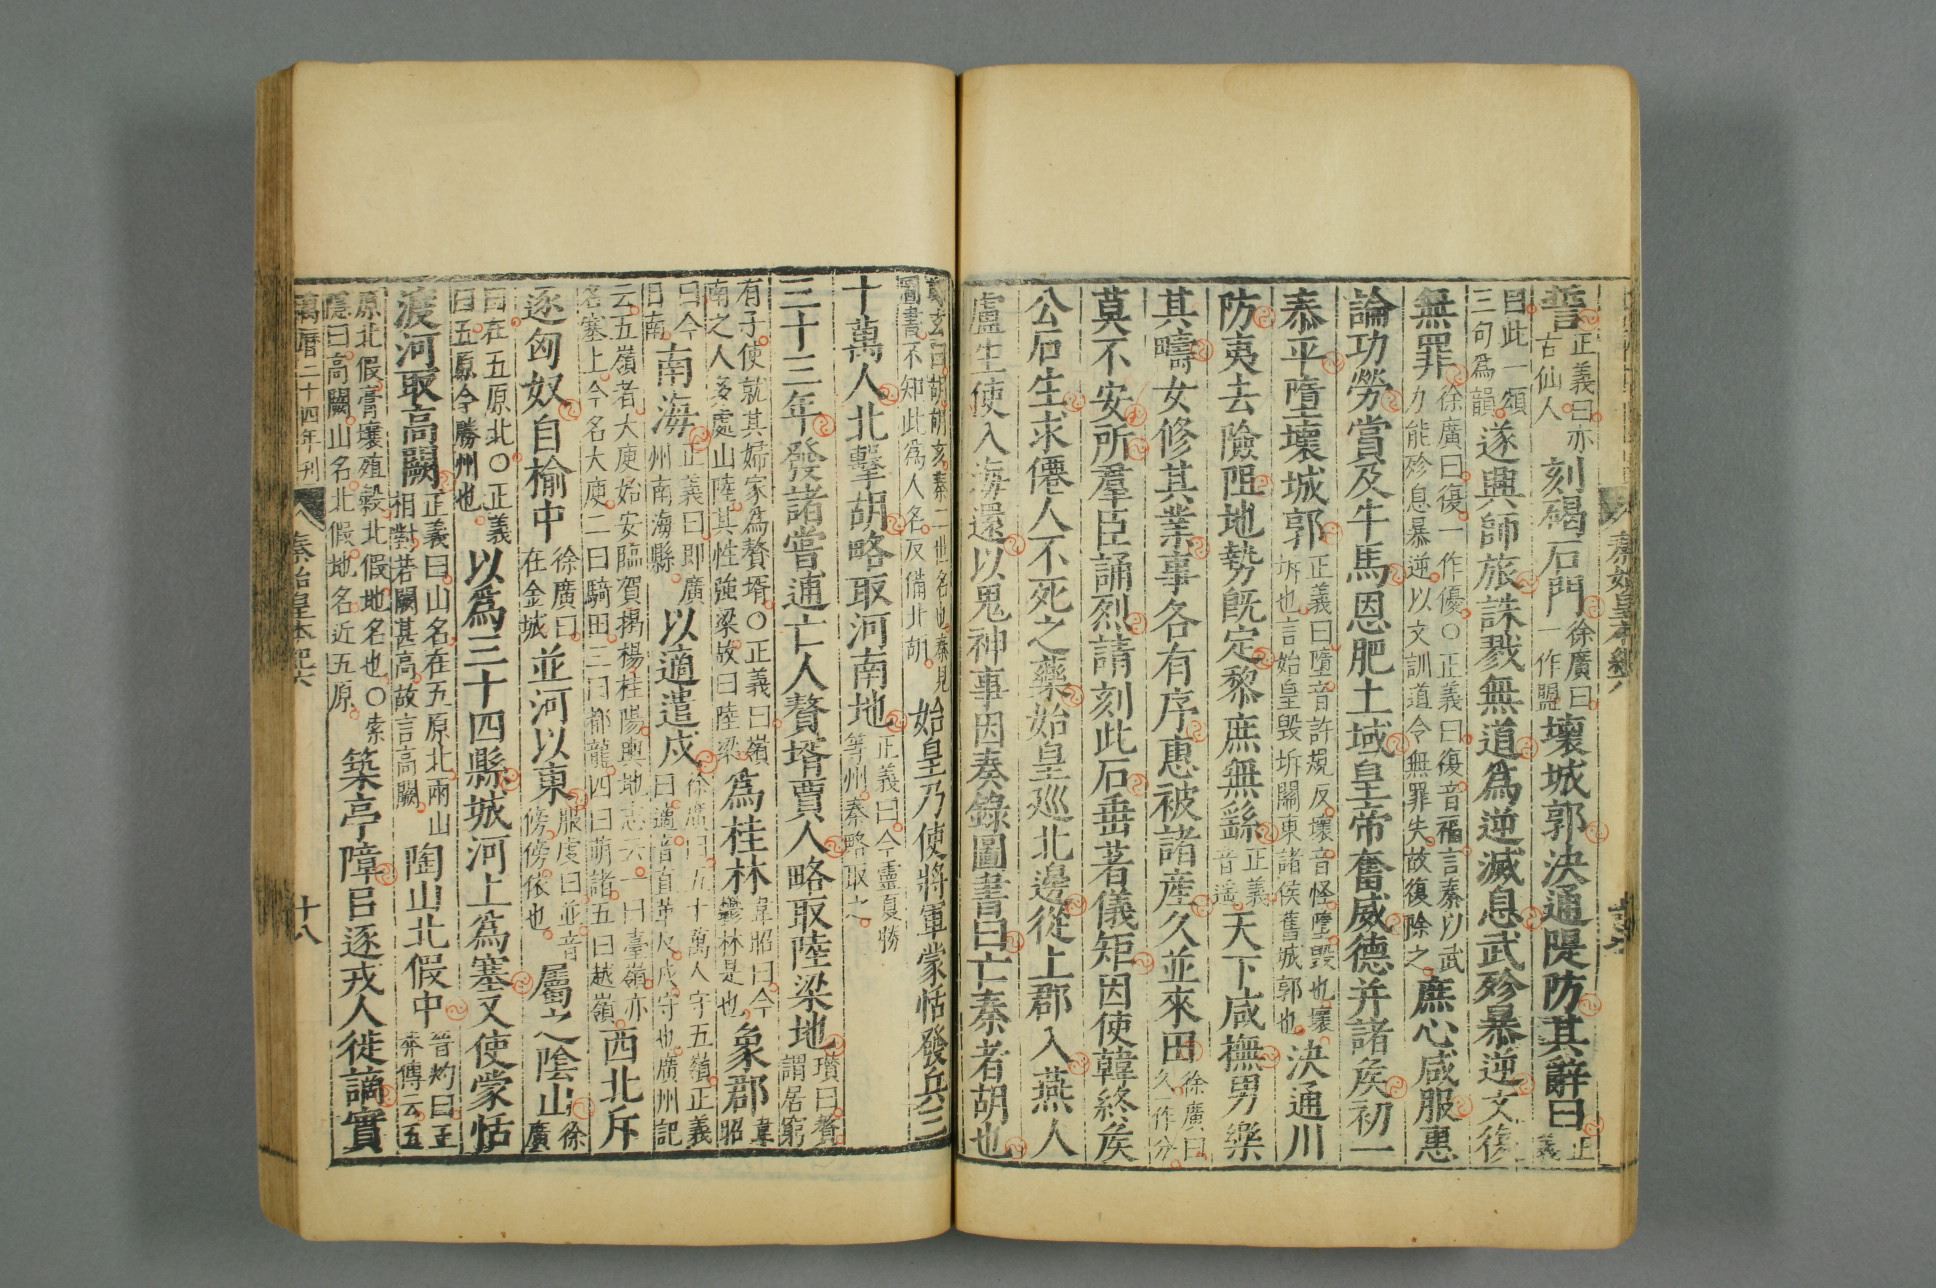 誓正義曰亦古仙人刻碣石門徐廣曰一作盟壞城郭決通隄防其辭曰正義
曰此一頌三句爲韻遂興師旅誅戮無道爲逆滅息武殄暴逆文復
無罪徐廣曰復一作優○正義曰復音福言秦以武力能殄息暴逆以文訓道令無罪失故復除之庶心咸服惠
論功勞賞及牛馬恩肥土域皇帝奮威德并諸矦初一
泰平隳壞城郭正義曰墮音許規反壞音怪墮毁也壞坼也言始皇毁坼關東諸侯舊城郭也決通川
防夷去險阻地勢旣定黎庶無繇正義音遥天下咸撫男樂
其疇女修其業事各有序惠被諸產久並來田徐廣曰久一作分
莫不安所羣臣誦烈請刻此石垂著儀矩因使韓終矦
公石生求僊人不死之藥始皇巡北邊從上郡入燕人
盧生使入海還以鬼神事因奏錄圖書曰亡秦者胡也
鄭玄曰胡胡亥秦二世名也秦見圖書不知此爲人名反備北胡始皇乃使將軍蒙恬發兵三
十萬人北擊胡略取河南地正義曰今靈夏勝等州秦略取之
三十三年發諸嘗逋亡人贅壻賈人略取陸梁地瓚曰贅謂居窮
有子使就其婦家爲贅壻○正義曰嶺南之人多處山陸其性強梁故曰陸梁爲桂林韋昭曰今鬱林是也象郡韋昭
曰今日南南海正義曰即廣州南海縣以適遣戍徐廣曰五十萬人守五嶺正義曰適音直革反戍守也廣州記
云五嶺者大庾始安臨賀揭楊桂陽輿地志云一曰臺嶺亦名塞上今名大庾二曰騎田三曰都龍四曰萌諸五曰越嶺西北斥
逐匈奴自榆中徐廣曰在金城並河以東服虔曰並音傍傍依也屬之陰山徐廣
曰在五原北○正義曰五原今勝州也以爲三十四縣城河上爲塞又使蒙恬
渡河取高闕正義曰山名在五原北兩山相對若闕甚高故言高闕陶山北假中晉灼曰王莽傳云五
原北假膏壤殖穀北假地名也○索隱曰高闕山名北假地名近五原築亭障㠯逐戎人徙謫實
萬曆二十四年刊 秦始皇本紀六 十八